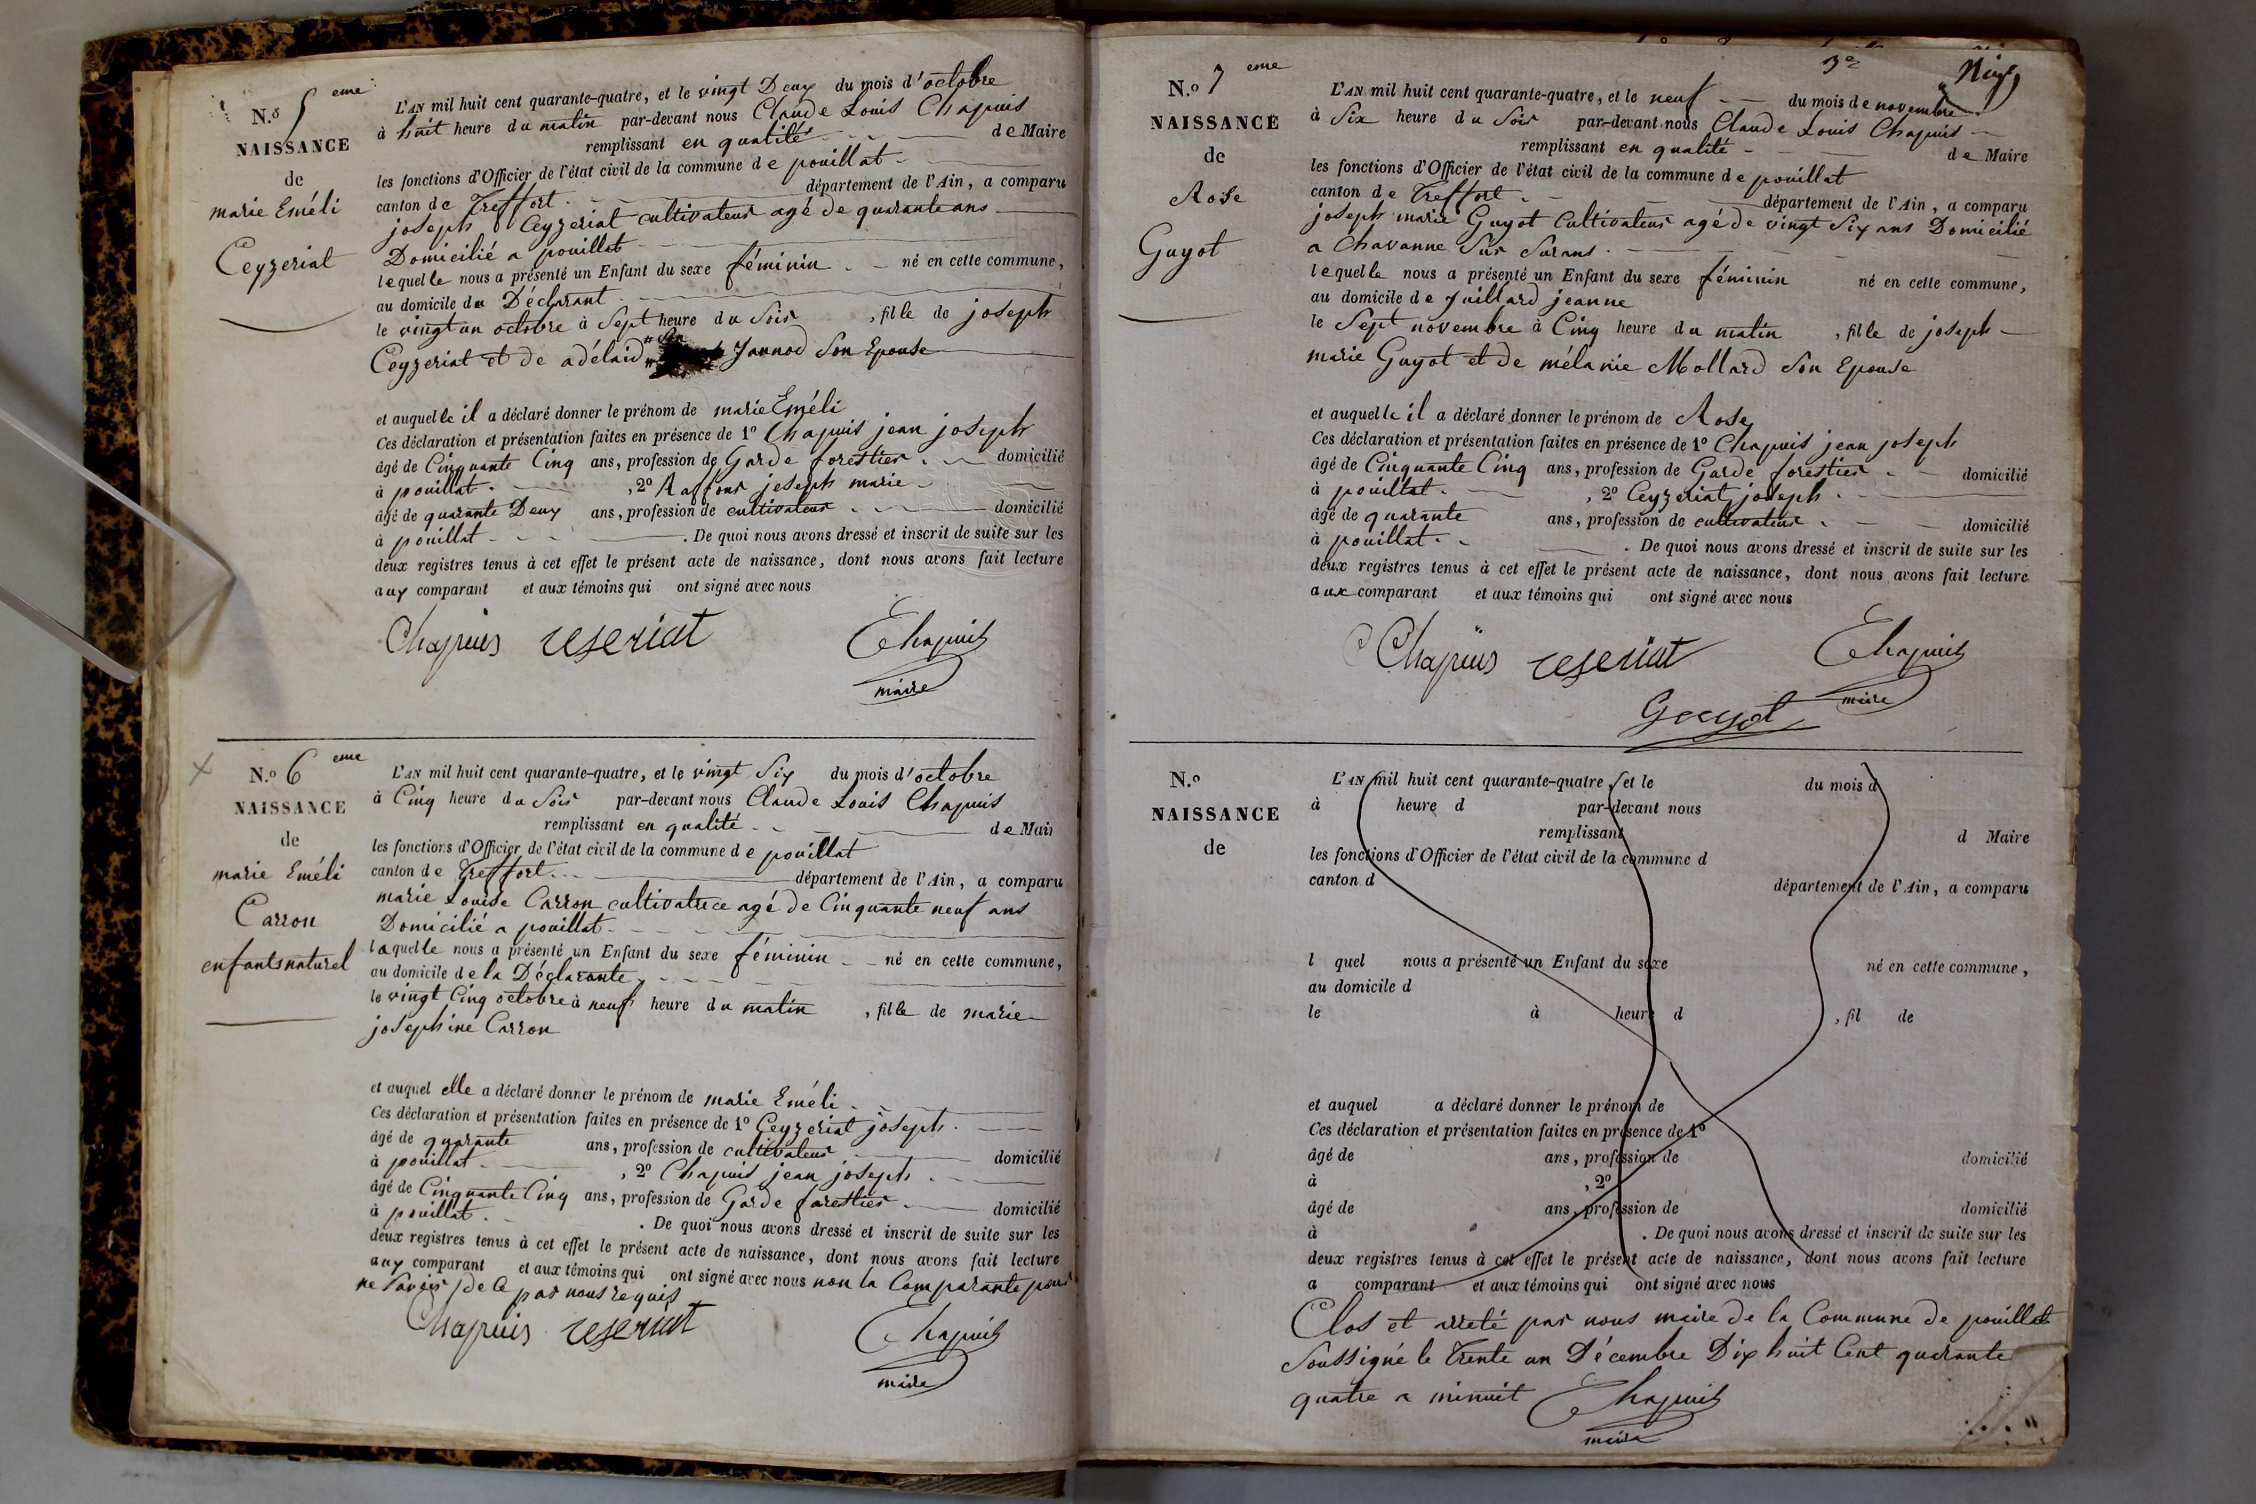 N.o 5 eme
NAISSANCE
de
marie Eméli
Ceyzeriat
L'AN mil huit cent quarante-quatre, et le vingt Deux du mois d'octobre
à huit heure du matin par-devant nous Claude Louis Chapuis
remplissant en qualité de Maire
les fonctions d'Officier de l'état civil de la commune de pouillat
canton de Treffort département de l'Ain, a comparu
joseph Ceyzeriat cultivateur agé de quarante ans
Domicilié a pouillat
lequelle nous a présenté un Enfant du sexe féminin né en cette commune,
au domicile du Déclarant
le vingt un octobre à Sept heure du Soir , fille de joseph
Ceyzeriat et de adélaid Jannod Son Epouse
et auquelle il a déclaré donner le prénom de marie Eméli
Ces déclaration et présentation faites en présence de 1o Chapuis jean joseph
âgé de Cinquante Cinq ans, profession de Garde forestier domicilié
à pouillat , 2o Raffour joseph marie
âgé de quarante Deux ans, profession de cultivateur domicilié
à pouillat . De quoi nous avons dressé et inscrit de suite sur les
deux registres tenus à cet effet le présent acte de naissance, dont nous avons fait lecture
aux comparant et aux témoins qui ont signé avec nous
Chapuis ceseriat Chapuis
maire
N.o 6 eme
NAISSANCE
de
marie Eméli
Carron
enfantsnaturel
L'AN mil huit cent quarante-quatre, et le vingt Six du mois d'octobre
à Cinq heure du Soir par-devant nous Claude Louis Chapuis
remplissant en qualité de Mair
les fonctions d'Officier de l'état civil de la commune de pouillat
canton de Treffort département de l'Ain, a comparu
marie Louise Carron cultivatrice agé de Cinquante neuf ans
Domicilié a pouillat
laquelle nous a présenté un Enfant du sexe féminin né en cette commune,
au domicile de la Déclarante
le vingt Cinq octobre à neuf heure du matin , fille de marie
josephine Carron
et auquel elle a déclaré donner le prénom de marie Eméli
Ces déclaration et présentation faites en présence de 1o Ceyzeriat joseph
âgé de quarante ans, profession de cultivateur domicilié
à pouillat , 2o Chapuis jean joseph
âgé de Cinquante Cinq ans, profession de Garde forestier domicilié
à pouillat . De quoi nous avons dressé et inscrit de suite sur les
deux registres tenus à cet effet le présent acte de naissance, dont nous avons fait lecture
aux comparant et aux témoins qui ont signé avec nous non la Comparante pour
ne Savoir de ce par nous requis
Chapuis ceseriat Chapuis
maire
N.o 7 eme
NAISSANCE
de
Rose
Guyot
L'AN mil huit cent quarante-quatre, et le neuf du mois de novembre
à Six heure du Soir par-devant nous Claude Louis Chapuis
remplissant en qualité de Maire
les fonctions d'Officier de l'état civil de la commune de pouillat
canton de Treffort département de l'Ain, a comparu
joseph marie Guyot Cultivateur agé de vingt Six ans Domicilié
a Chavanne Sur Surans
lequelle nous a présenté un Enfant du sexe féminin né en cette commune,
au domicile de Juillard jeanne
le Sept novembre à Cinq heure du matin , fille de joseph
marie Guyot et de mélanie Mollard Son Epouse
et auquelle il a déclaré donner le prénom de Rose
Ces déclaration et présentation faites en présence de 1o Chapuis jean joseph
âgé de Cinquante Cinq ans, profession de Garde forestier domicilié
à pouillat , 2o Ceyzeriat joseph
âgé de quarante ans, profession de cultivateur domicilié
à pouillat . De quoi nous avons dressé et inscrit de suite sur les
deux registres tenus à cet effet le présent acte de naissance, dont nous avons fait lecture
aux comparant et aux témoins qui ont signé avec nous
Chapuis ceseriat Chapuis
maire
Guyot
N.o
NAISSANCE
de
L'AN mil huit cent quarante-quatre, et le du mois d
à heure d par-devant nous
remplissant d Maire
les fonctions d'Officier de l'état civil de la commune d
canton d département de l'Ain, a comparu
l quel nous a présenté un Enfant du sexe né en cette commune,
au domicile d
le à heure d , fil de
et auquel a déclaré donner le prénom de
Ces déclaration et présentation faites en présence de 1o
âgé de ans, profession de domicilié
à , 2o
âgé de ans, profession de domicilié
à . De quoi nous avons dressé et inscrit de suite sur les
deux registres tenus à cet effet le présent acte de naissance, dont nous avons fait lecture
a comparant et aux témoins qui ont signé avec nous
Clos et arreté par nous maire de la Commune de pouillat
Soussigné le Trente un Décembre Dix huit Cent quarante
quatre a minuit Chapuis
maire